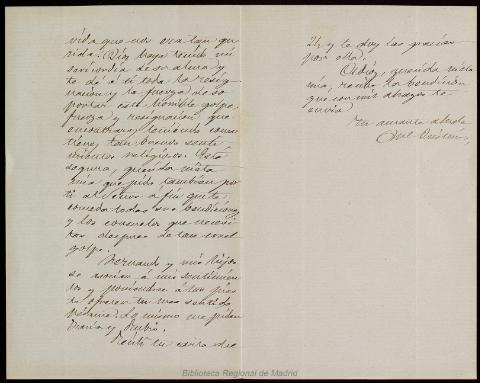 vida que nos era tan que
rida. Dios haya tenido mi
sericordia de su alma y
te dé á ti toda la resig
nacion y la fuerza de so
portar este terrible golpe,
fuerza y resignacion que
encontraras teniendo como
tienes, tan buenos senti
mientos religiosos. Está
segura, querida nieta
mia que pido tambien por
ti al Señor a fin que te
conceda todas sus bendiciones
y los consuelos que necesi
tas despues de tan cruel
golpe.
Fernando y mis hijos
se asocian á mis sentimien
tos y poniendose á tus pies
te ofrecen su mas sentido
pésame. Lo mismo me piden
Maria y
Recibí tu carta del
24 y te doy las gracias
por ella.
Adios, querida nieta
mia, recibe la bendicion
que con mis abrazos te
envia
tu amante abuela
Biblioteca Regional de Madrid